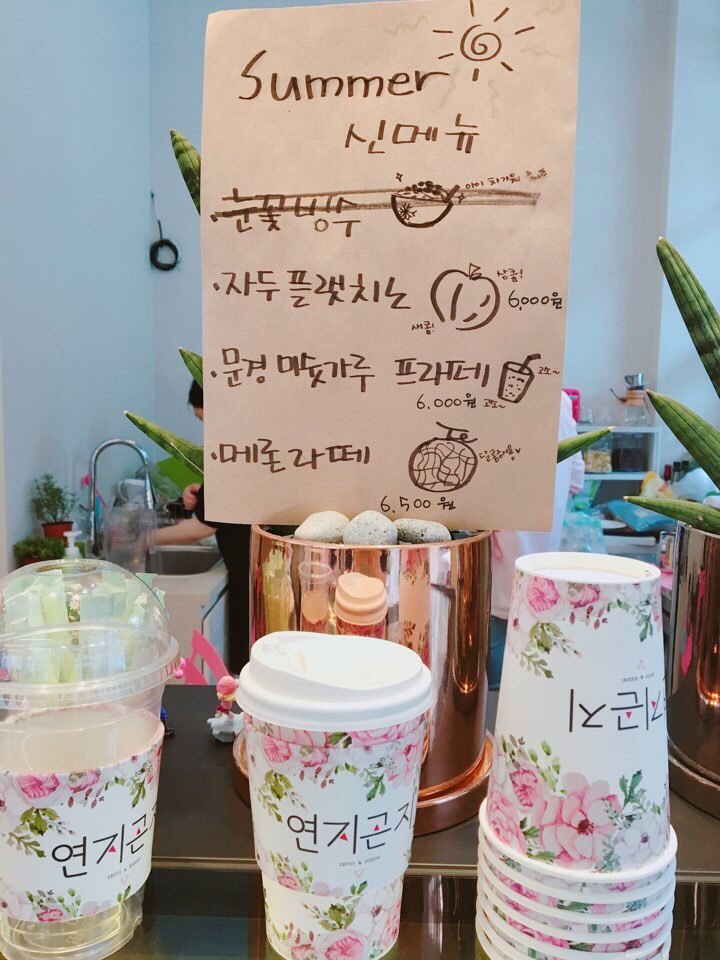 Summer
신메뉴
·눈꽃빙수
아이 차가워
·자두플랫치노
상큼!
새콤!
6,000원
·문경 미숫가루 프라페
고소~
6,000원 고소~
·메론라떼
달콤해용♥
6,500원
연지곤지
COFFEE & DESSERT
연지곤지
COFFEE & DESSERT
연지곤지
COFFEE & DESSERT